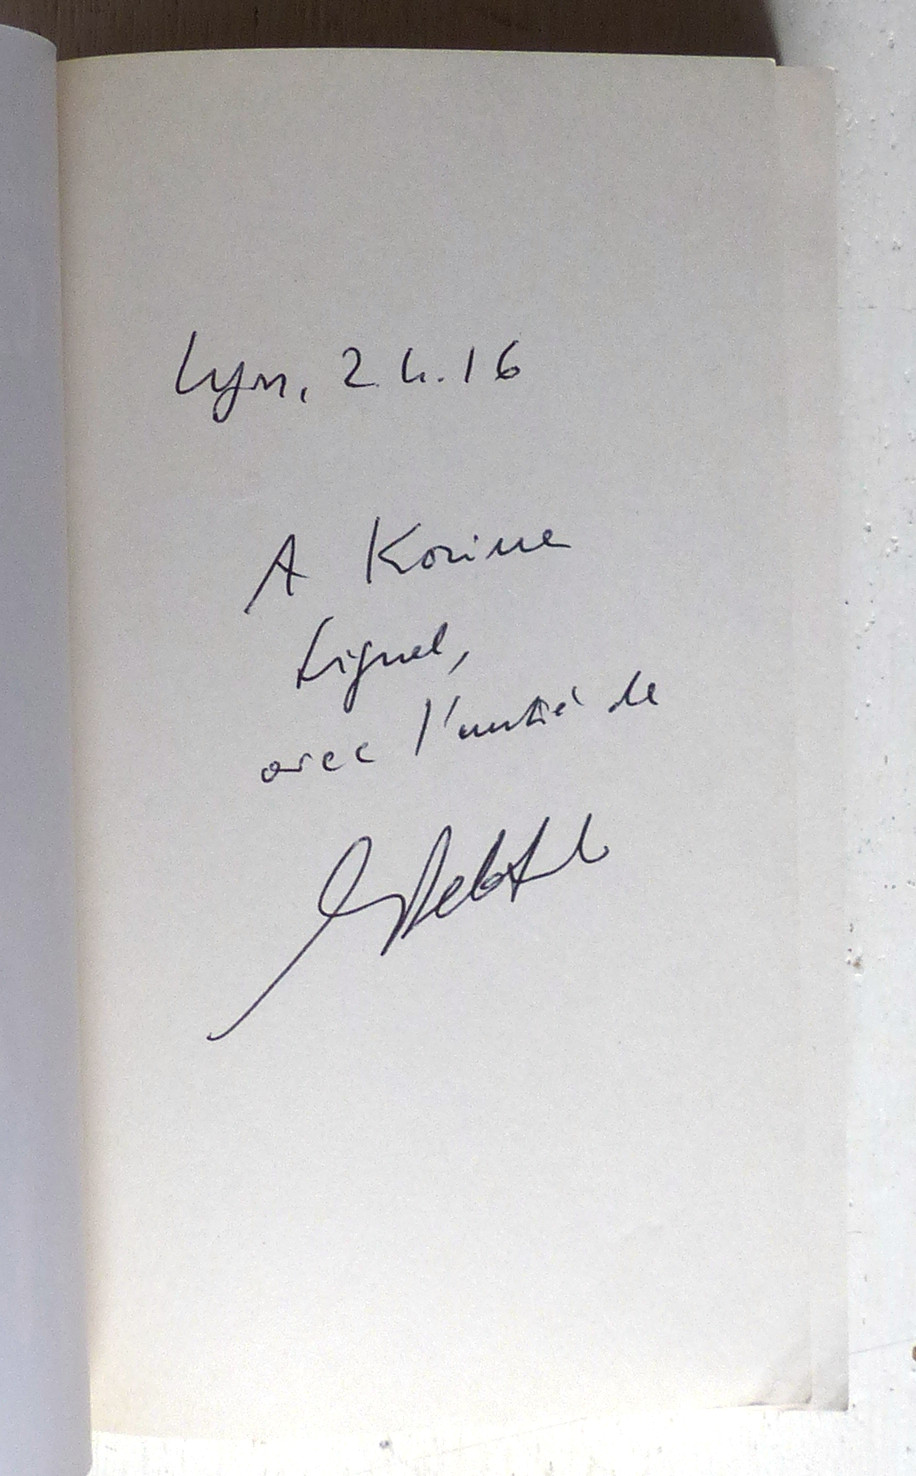 Lyon, 2.4.16
A Korinne
avec l'amitié de